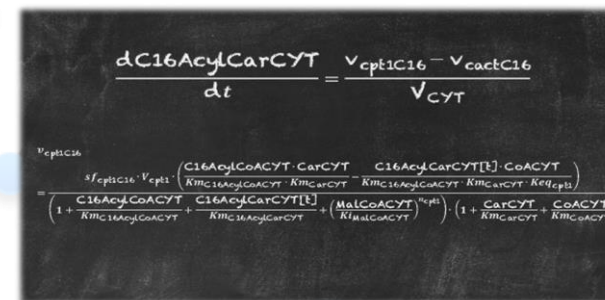 dC16AcylCarCYT / dt = (v_cpt1C16 − v_cactC16) / V_CYT
v_cpt1C16
= sf_cpt1C16 · V_cpt1 · (C16AcylCoACYT · CarCYT / Km_C16AcylCoACYT · Km_CarCYT − C16AcylCarCYT[t] · CoACYT / Km_C16AcylCoACYT · Km_CarCYT · Keq_cpt1)
(1 + C16AcylCoACYT / Km_C16AcylCoACYT + C16AcylCarCYT[t] / Km_C16AcylCarCYT + (MalCoACYT / Ki_MalCoACYT)^n_cpt1) · (1 + CarCYT / Km_CarCYT + CoACYT / Km_CoACYT